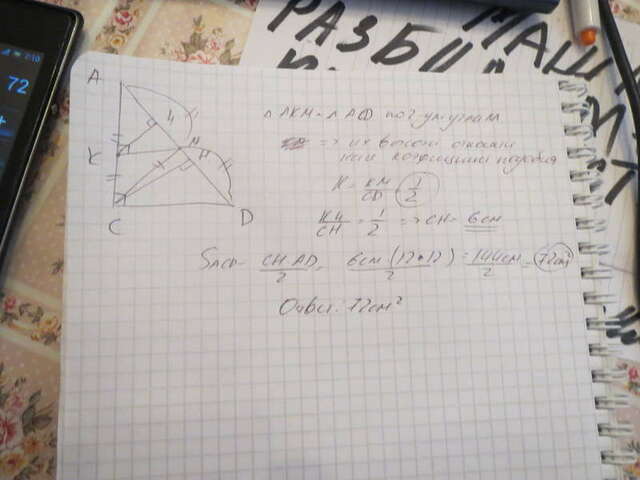 РАЗБИЛ
МАШ
72
A
K
C
D
M
H
△AKM ~ △ACD по 2-ум углам
=> их высоты относятся
как коэффициент подобия
K = KM/CD = 1/2
KH/CH = 1/2 => CH = 6см
SACD = CH·AD/2 = 6см·(12·12)/2 = 144см/2 = 72см²
Ответ: 72см²